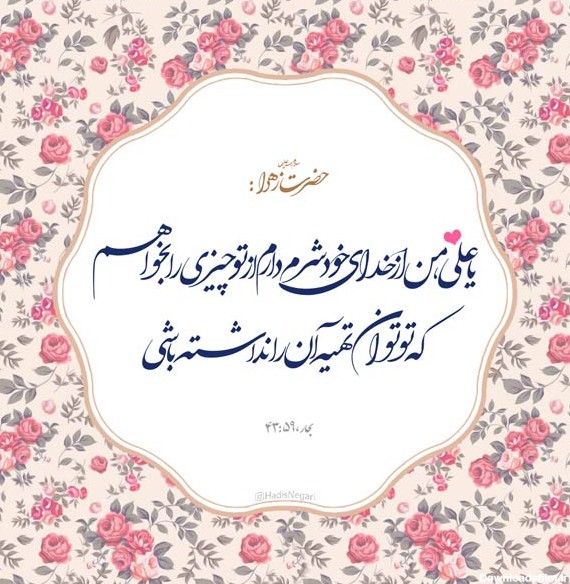 حضرت زهرا :
یا علی، من از خدای خود شرم دارم از تو چیزی را بخواهم
که تو توان تهیه آن را نداشته باشی
بحار، ۴۳:۵۹
@HadisNegari